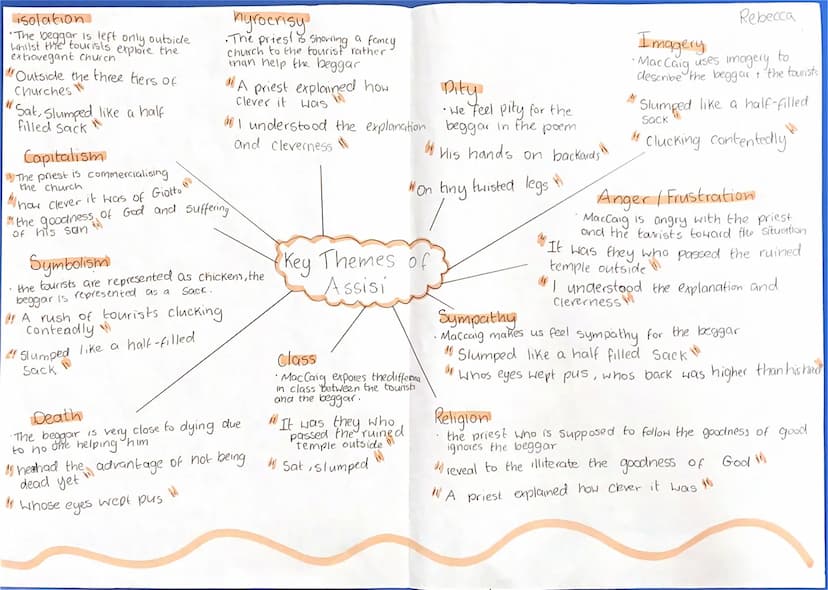 Rebecca
isolation
· The beggar is left only outside
whilst the tourists explore the
extravegant church
"Outside the three tiers of
churches"
"Sat, Slumped like a half
filled Sack"
hyrocrisy
· The priest is showing a fancy
church to the tourist rather
than help the beggar
"A priest explained how
clever it was"
"I understood the explanation
and cleverness"
Pity
· We feel pity for the
beggar in the poem
"His hands on backards"
"On tiny twisted legs"
Imagery
· MacCaig uses imagery to
describe the beggar + the tourists
"Slumped like a half-filled
sack"
"Clucking contentedly"
Capitalism
· The priest is commercialising
the church
"how clever it was of Giotto"
"the goodness of God and suffering
of his son"
Anger/Frustration
· MacCaig is angry with the priest
and the tourists toward the situation
"It was they who passed the ruined
temple outside"
"I understood the explanation and
cleverness"
Key Themes of
Assisi
Symbolism
· the tourists are represented as chickens, the
beggar is represented as a sack.
"A rush of tourists clucking
contendly"
"Slumped like a half-filled
Sack"
Sympathy
· Maccaig makes us feel sympathy for the beggar
"Slumped like a half filled Sack"
"Whos eyes wept pus, whos back was higher than his head"
Class
· MacCaig expores the differnce
in class between the tourist
and the beggar.
"It was they who
passed the ruined
temple outside"
"Sat, slumped"
Death
· The beggar is very close to dying due
to no one helping him
"he had the advantage of not being
dead yet"
"Whose eyes wept pus"
Religion
· the priest who is supposed to follow the goodness of good
ignores the beggar
"reveal to the illiterate the goodness of God"
"A priest explained how clever it was"